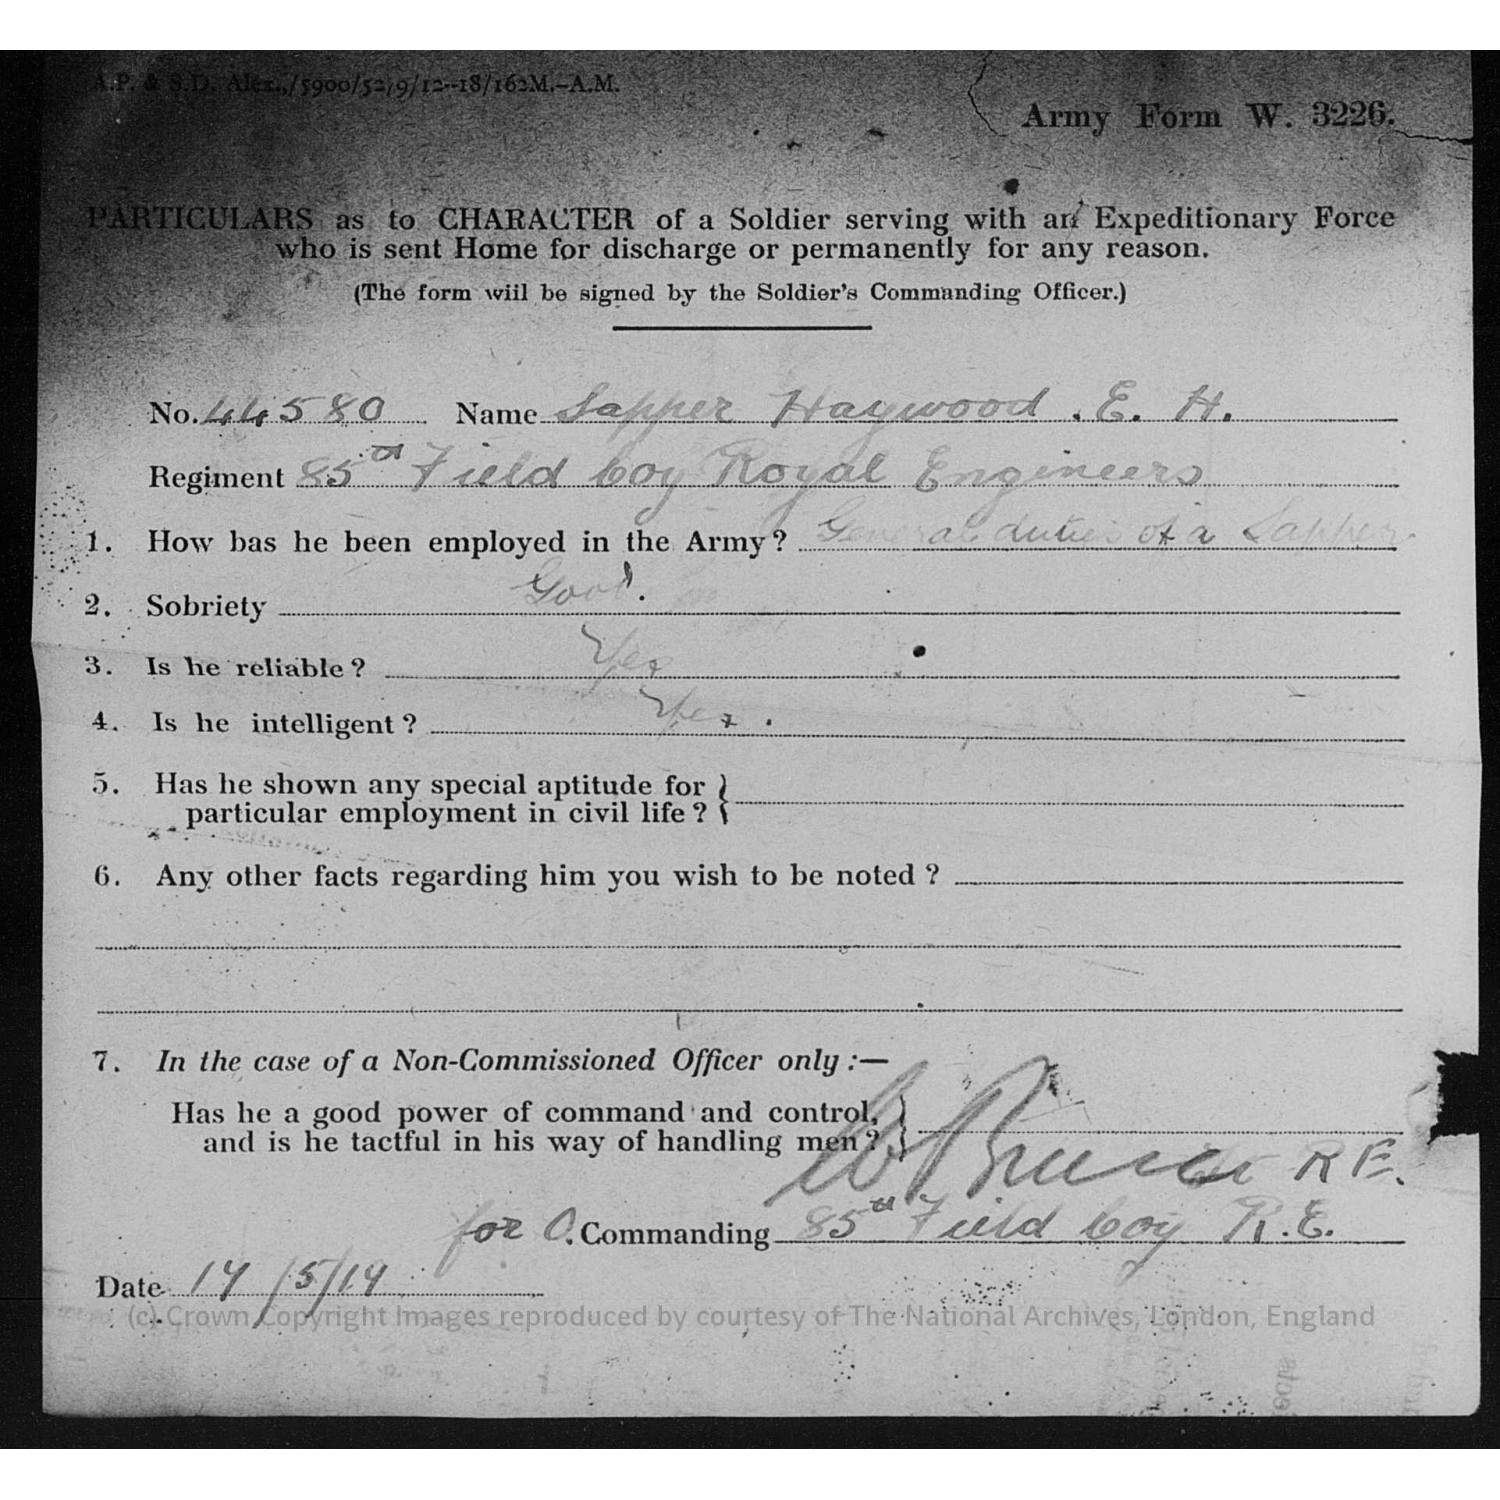 A.P. & S.D. Alex.,/5900/52/9/12--18/162M.–A.M.
Army Form W. 3226.
PARTICULARS as to CHARACTER of a Soldier serving with an Expeditionary Force
who is sent Home for discharge or permanently for any reason.
(The form wiil be signed by the Soldier's Commanding Officer.)
No. 44580 Name Sapper Haywood . E. H.
Regiment 85th Field Coy Royal Engineers
1. How bas he been employed in the Army? General duties of a Sapper
2. Sobriety Good.
3. Is he reliable? Yes
4. Is he intelligent? Yes.
5. Has he shown any special aptitude for
particular employment in civil life?
6. Any other facts regarding him you wish to be noted?
7. In the case of a Non-Commissioned Officer only :—
Has he a good power of command and control,
and is he tactful in his way of handling men?
R E.
for O. Commanding 85th Field Coy R.E.
Date 14/5/19
(c) Crown Copyright Images reproduced by courtesy of The National Archives, London, England